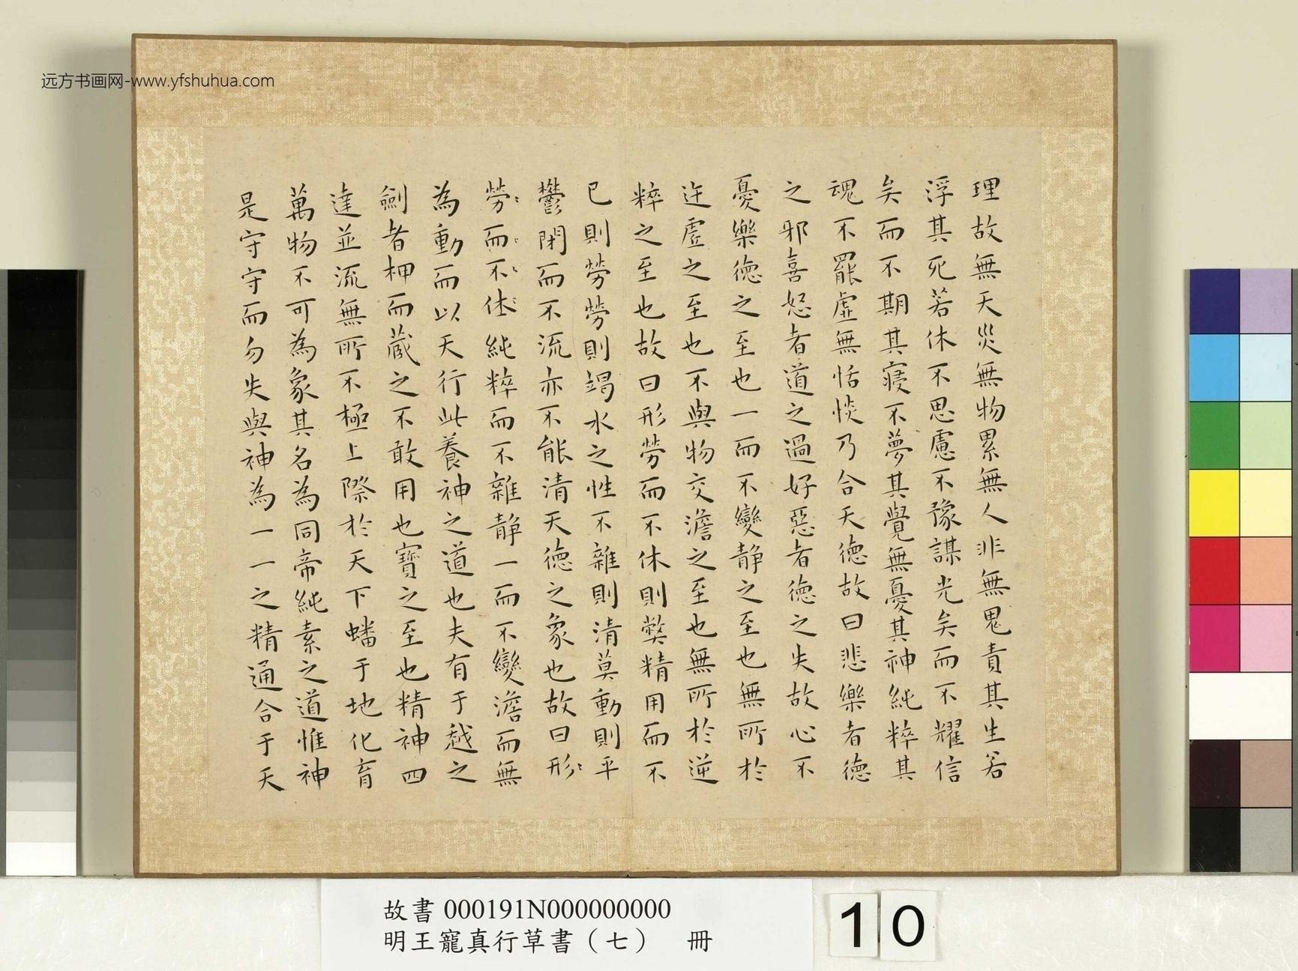 远方书画网-www.yfshuhua.com
理故無天災無物累無人非無鬼責其生若
浮其死若休不思慮不豫謀光矣而不耀信
矣而不期其寢不夢其覺無憂其神純粹其
魂不罷虛無恬惔乃合天德故曰悲樂者德
之邪喜怒者道之過好惡者德之失故心不
憂樂德之至也一而不變靜之至也無所於
迕虛之至也不與物交澹之至也無所於逆
粹之至也故曰形勞而不休則弊精用而不
已則勞勞則竭水之性不雜則清莫動則平
鬱閉而不流亦不能清天德之象也故曰形
勞而不休純粹而不雜靜一而不變澹而無
為動而以天行此養神之道也夫有于越之
劍者柙而藏之不敢用也寶之至也精神四
達並流無所不極上際於天下蟠于地化育
萬物不可為象其名為同帝純素之道惟神
是守守而勿失與神為一一之精通合于天
故書000191N000000000
明王寵真行草書（七） 冊
10